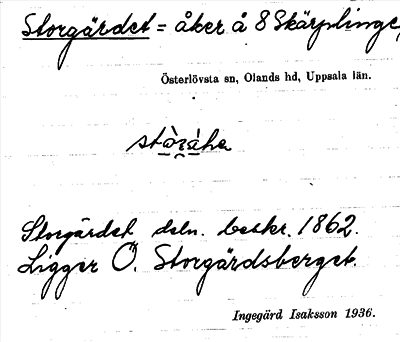 Storgärdet = åker å 8 Skärplinge,
Österlövsta sn, Olands hd, Uppsala län.
Storgärdet deln. beskr. 1862.
Ligger Ö. Storgärdsberget.
Ingegärd Isaksson 1936.